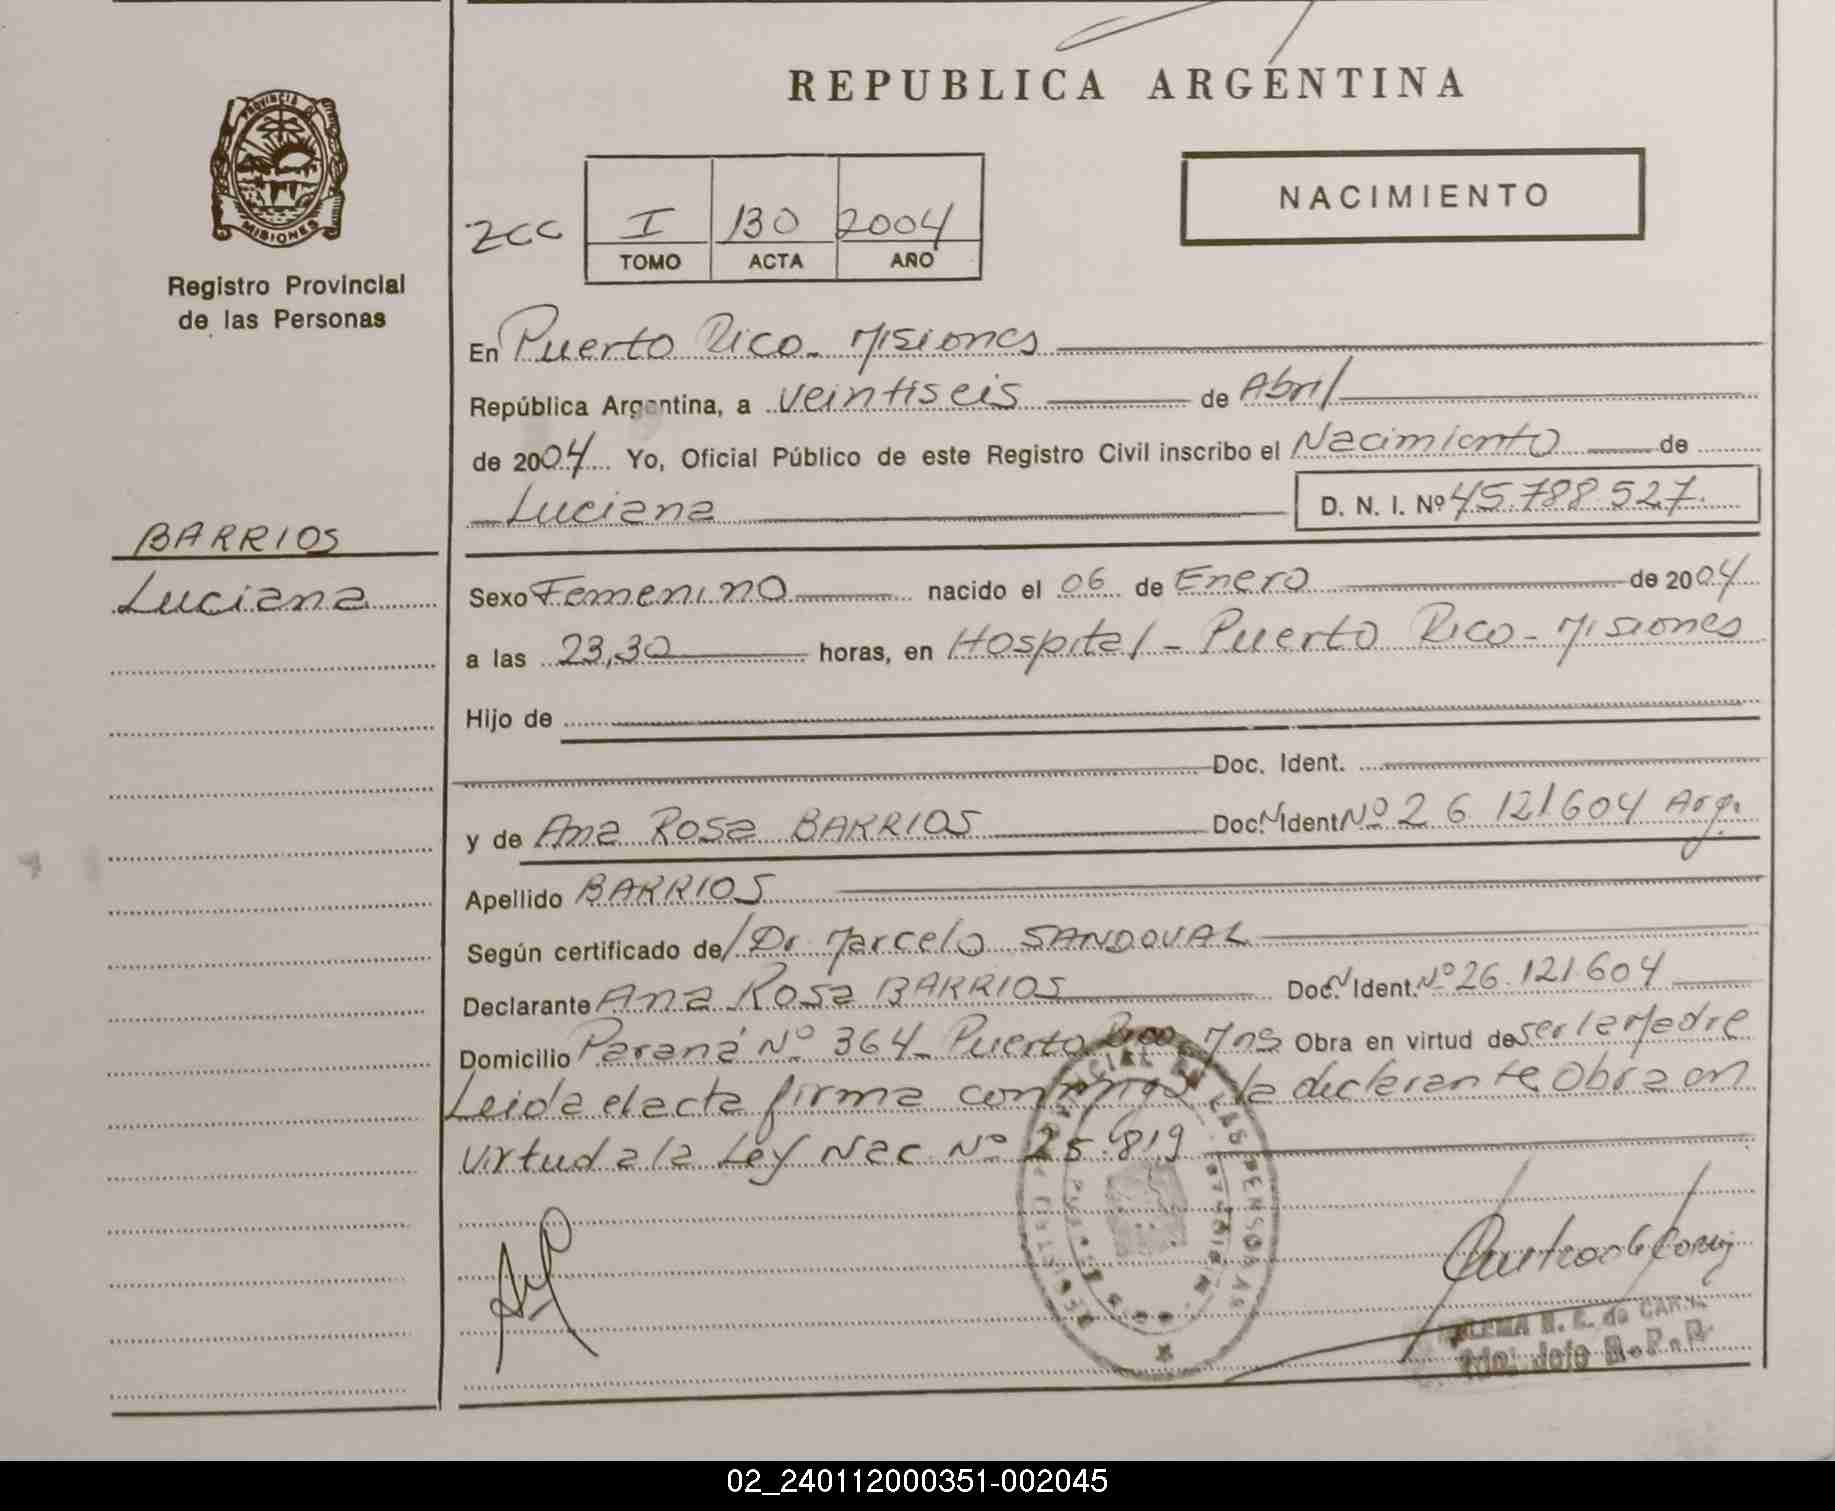 REPUBLICA ARGENTINA
PROVINCIA DE
MISIONES
Registro Provincial
de las Personas
NACIMIENTO
2cc I 130 2004
TOMO ACTA AÑO
En Puerto Rico - Misiones
República Argentina, a veintiseis de Abril
de 2004 Yo, Oficial Público de este Registro Civil inscribo el Nacimiento de
Luciana D. N. I. Nº 45.788.527.
BARRIOS
Luciana
Sexo Femenino nacido el 06 de Enero de 2004
a las 23,30 horas, en Hospital - Puerto Rico - Misiones
Hijo de
Doc. Ident.
y de Ana Rosa BARRIOS Doc. N Ident. Nº 26 121604 Arg.
Apellido BARRIOS
Según certificado de/ Dr Marcelo SANDOVAL
Declarante Ana Rosa BARRIOS Doc. N Ident. Nº 26.121.604
Domicilio Paraná Nº 364 - Puerto Rico - Mns Obra en virtud de ser la Madre
Leida el acta firma conmigo la declarante Obra en
virtud a la Ley Nac. Nº 25.819
de CAR
R.P.P.
02_240112000351-002045